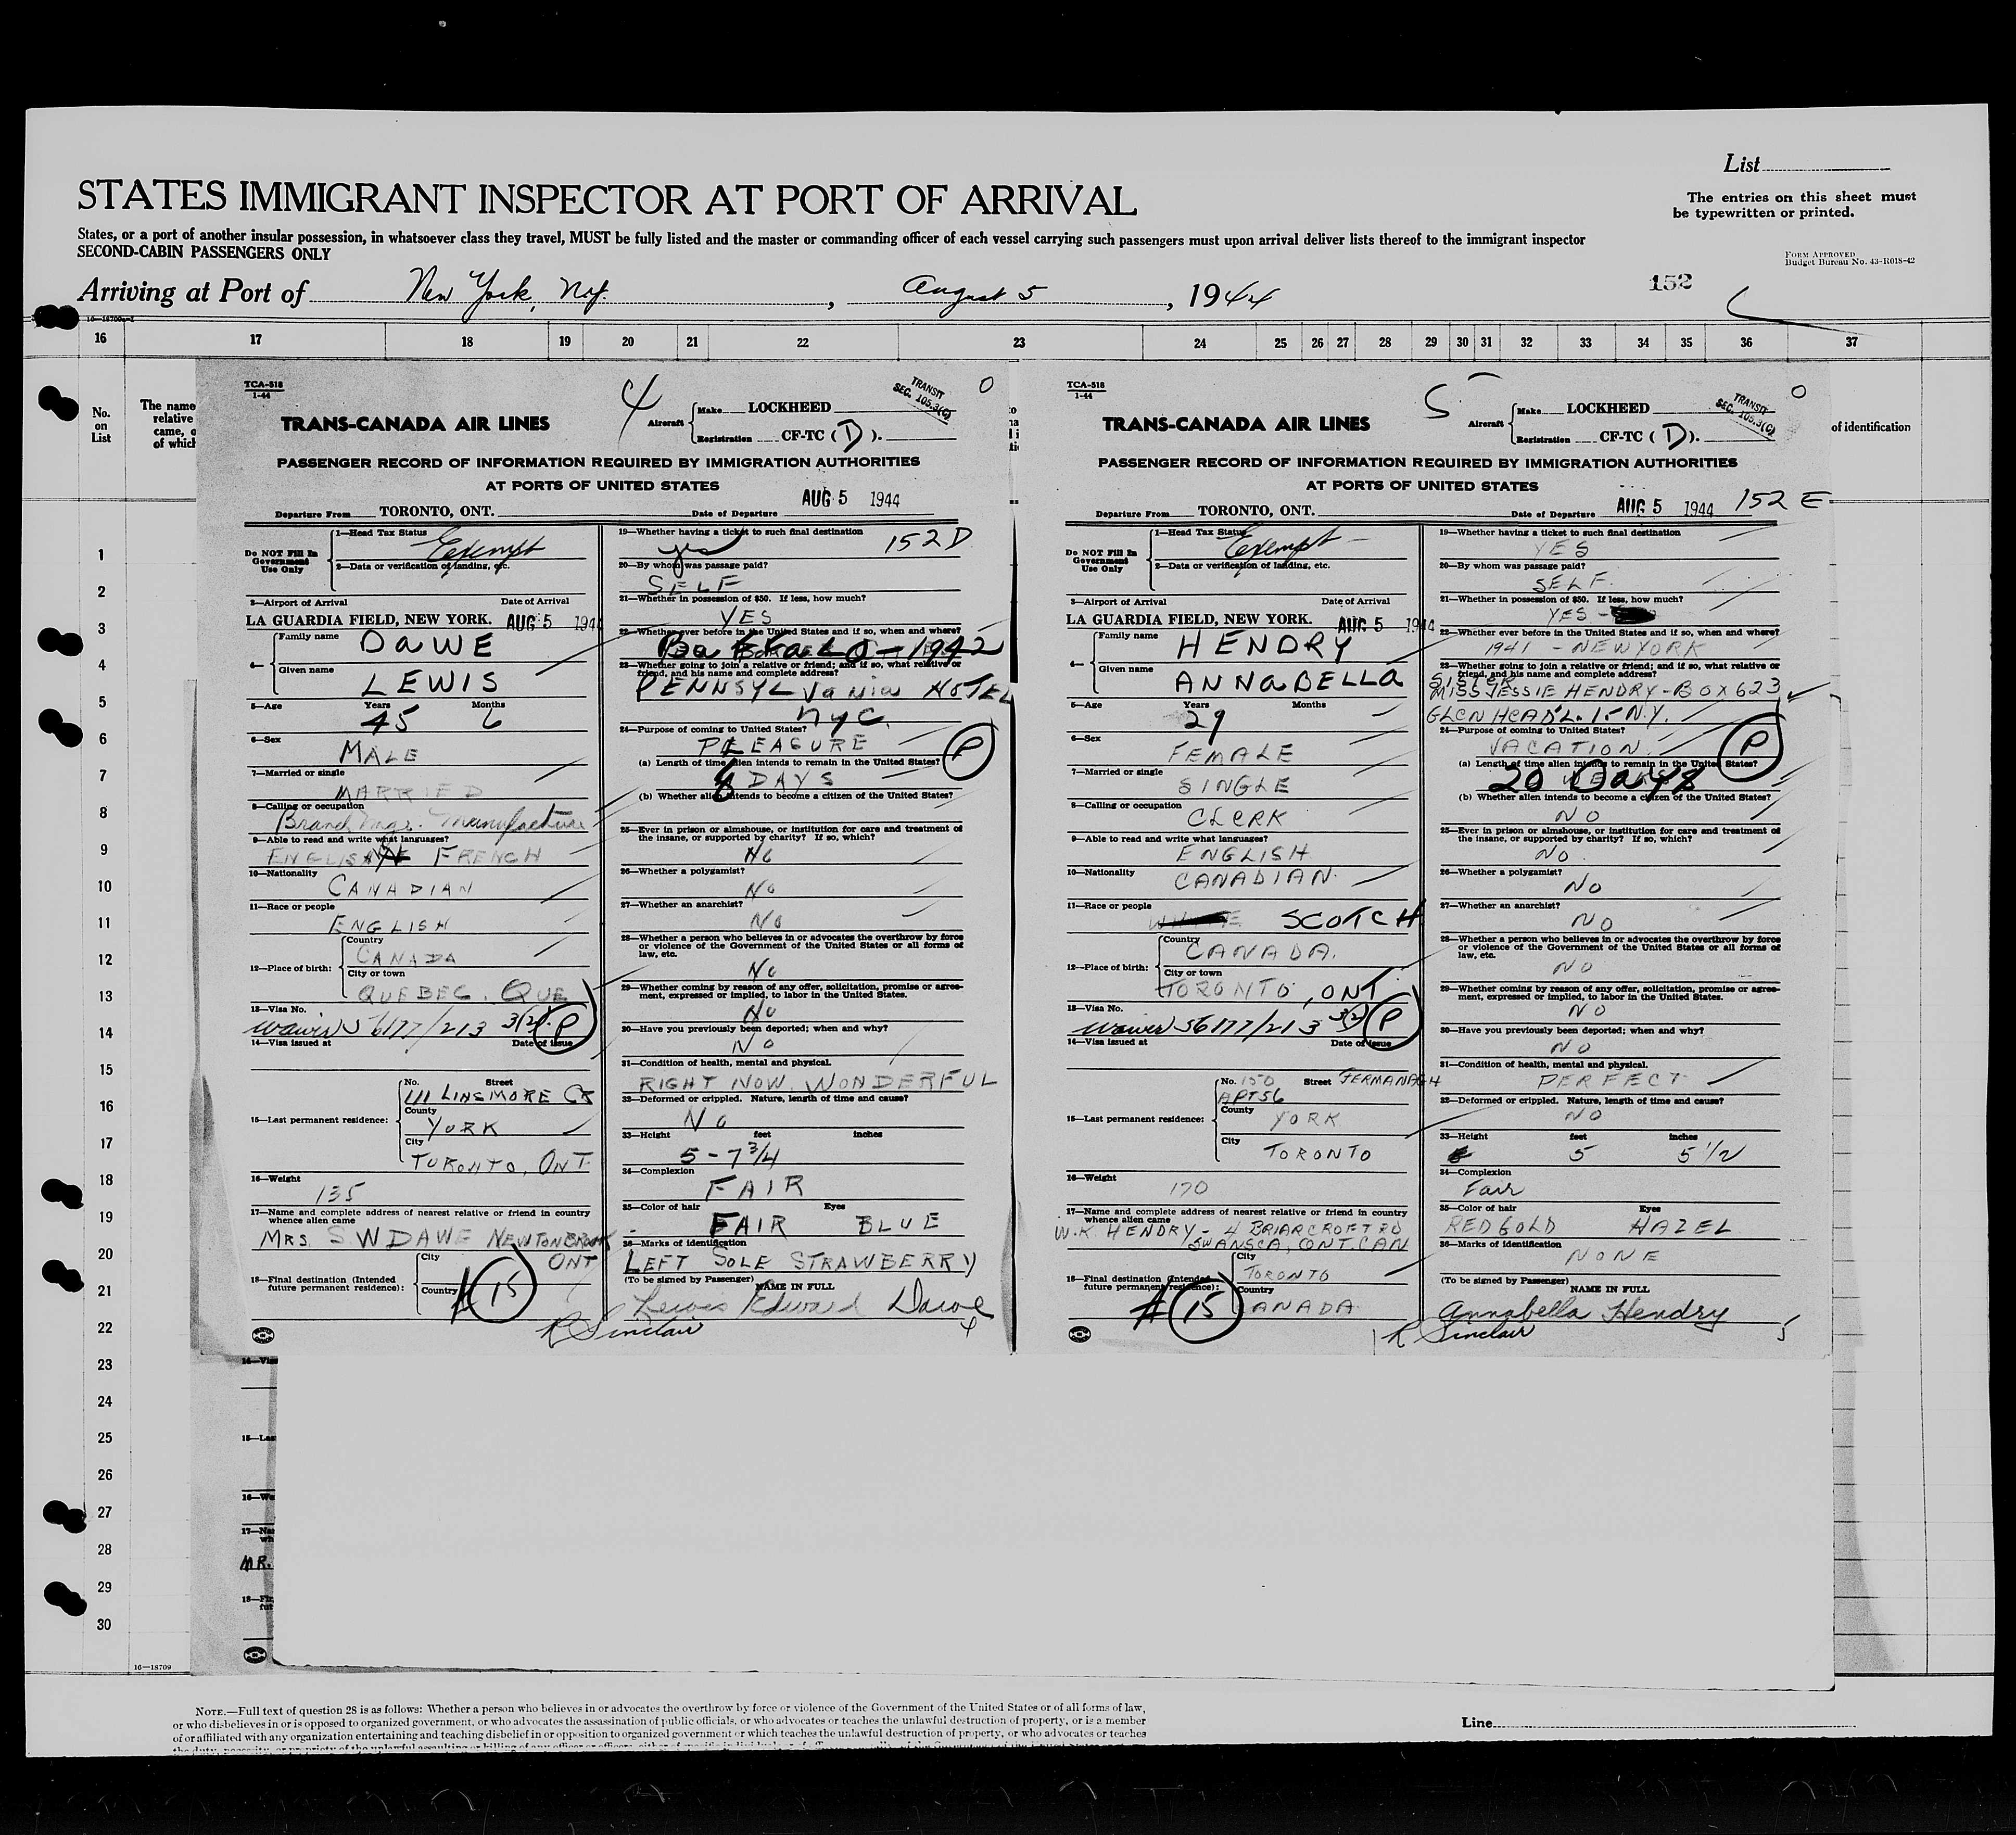 List
STATES IMMIGRANT INSPECTOR AT PORT OF ARRIVAL
The entries on this sheet must
be typewritten or printed.
States, or a port of another insular possession, in whatsoever class they travel, MUST be fully listed and the master or commanding officer of each vessel carrying such passengers must upon arrival deliver lists thereof to the immigrant inspector
SECOND-CABIN PASSENGERS ONLY
FORM APPROVED
Budget Bureau No. 43-R018-42
Arriving at Port of New York, N.Y., August 5, 1944
152
16 17 18 19 20 21 22 23 24 25 26 27 28 29 30 31 32 33 34 35 36 37
No.
on
List
The name
relative
came, o
of which
of identification
TCA-518
1-44
4
TRANS-CANADA AIR LINES
Aircraft
Make LOCKHEED
Registration CF-TC (D).
TRANSIT
SEC. 105.3(C)
0
PASSENGER RECORD OF INFORMATION REQUIRED BY IMMIGRATION AUTHORITIES
AT PORTS OF UNITED STATES
Departure From TORONTO, ONT. Date of Departure AUG 5 1944
Do NOT Fill In
Government
Use Only
1—Head Tax Status
Exempt
2—Data or verification of landing, etc.
3—Airport of Arrival Date of Arrival
LA GUARDIA FIELD, NEW YORK. AUG 5 1944
4—
Family name
DAWE
Given name
LEWIS
5—Age Years Months
45 6
6—Sex
MALE
7—Married or single
MARRIED
8—Calling or occupation
Branch Mgr. Manufacture
9—Able to read and write what languages?
ENGLISH FRENCH
10—Nationality
CANADIAN
11—Race or people
ENGLISH
12—Place of birth:
Country
CANADA
City or town
QUEBEC. QUE
13—Visa No.
Waiver 56177/213 3(2) P
14—Visa issued at Date of issue
15—Last permanent residence:
No. Street
111 LINSMORE CR
County
YORK
City
TORONTO, ONT.
16—Weight
135
17—Name and complete address of nearest relative or friend in country
whence alien came
MRS. S W DAWE NEWTONBROOK
ONT
18—Final destination (Intended
future permanent residence):
City
Country
# 15
R Sinclair
19—Whether having a ticket to such final destination
yes 152 D
20—By whom was passage paid?
SELF
21—Whether in possession of $50. If less, how much?
YES
22—Whether ever before in the United States and if so, when and where?
BUFFALO - 1942
23—Whether going to join a relative or friend; and if so, what relative or
friend, and his name and complete address?
PENNSYLVANIA HOTEL
NYC.
24—Purpose of coming to United States?
PLEASURE
P
(a) Length of time alien intends to remain in the United States?
DAYS
(b) Whether alien intends to become a citizen of the United States?
25—Ever in prison or almshouse, or institution for care and treatment of
the insane, or supported by charity? If so, which?
NO
26—Whether a polygamist?
NO
27—Whether an anarchist?
NO
28—Whether a person who believes in or advocates the overthrow by force
or violence of the Government of the United States or all forms of
law, etc.
NO
29—Whether coming by reason of any offer, solicitation, promise or agree-
ment, expressed or implied, to labor in the United States.
NO
30—Have you previously been deported; when and why?
NO
31—Condition of health, mental and physical.
RIGHT NOW, WONDERFUL
32—Deformed or crippled. Nature, length of time and cause?
NO
33—Height feet inches
5 - 7 3/4
34—Complexion
FAIR
35—Color of hair Eyes
FAIR BLUE
36—Marks of identification
LEFT SOLE STRAWBERRY
(To be signed by Passenger) NAME IN FULL
Lewis Edward Dawe
4
TCA-518
1-44
5
TRANS-CANADA AIR LINES
Aircraft
Make LOCKHEED
Registration CF-TC (D).
TRANSIT
SEC. 105.3(C)
0
PASSENGER RECORD OF INFORMATION REQUIRED BY IMMIGRATION AUTHORITIES
AT PORTS OF UNITED STATES
Departure From TORONTO, ONT. Date of Departure AUG 5 1944 152 E
Do NOT Fill In
Government
Use Only
1—Head Tax Status
Exempt
2—Data or verification of landing, etc.
3—Airport of Arrival Date of Arrival
LA GUARDIA FIELD, NEW YORK. AUG 5 1944
4—
Family name
HENDRY
Given name
ANNABELLA
5—Age Years Months
29
6—Sex
FEMALE
7—Married or single
SINGLE
8—Calling or occupation
CLERK
9—Able to read and write what languages?
ENGLISH
10—Nationality
CANADIAN.
11—Race or people
SCOTCH
12—Place of birth:
Country
CANADA.
City or town
TORONTO, ONT
13—Visa No.
Waiver 56177/213 3(2) P
14—Visa issued at Date of issue
15—Last permanent residence:
No. 150 Street FERMANAGH
APT 56
County
YORK
City
TORONTO
16—Weight
170
17—Name and complete address of nearest relative or friend in country
whence alien came
W.K HENDRY - 4 BRIARCROFT RD
SWANSEA, ONT. CAN
18—Final destination (Intended
future permanent residence):
City
TORONTO
Country
CANADA
# 15
R Sinclair
19—Whether having a ticket to such final destination
YES
20—By whom was passage paid?
SELF.
21—Whether in possession of $50. If less, how much?
YES -
22—Whether ever before in the United States and if so, when and where?
1941 - NEW YORK
23—Whether going to join a relative or friend; and if so, what relative or
friend, and his name and complete address?
SISTER
MISS JESSIE HENDRY - BOX 623
GLEN HEAD L. I. N.Y.
24—Purpose of coming to United States?
VACATION.
P
(a) Length of time alien intends to remain in the United States?
20 Days
(b) Whether alien intends to become a citizen of the United States?
NO
25—Ever in prison or almshouse, or institution for care and treatment of
the insane, or supported by charity? If so, which?
NO.
26—Whether a polygamist?
NO
27—Whether an anarchist?
NO
28—Whether a person who believes in or advocates the overthrow by force
or violence of the Government of the United States or all forms of
law, etc.
NO
29—Whether coming by reason of any offer, solicitation, promise or agree-
ment, expressed or implied, to labor in the United States.
NO
30—Have you previously been deported; when and why?
NO
31—Condition of health, mental and physical.
PERFECT
32—Deformed or crippled. Nature, length of time and cause?
NO
33—Height feet inches
5 5 1/2
34—Complexion
Fair
35—Color of hair Eyes
RED GOLD HAZEL
36—Marks of identification
NONE
(To be signed by Passenger) NAME IN FULL
Annabella Hendry
5
1
2
3
4
5
6
7
8
9
10
11
12
13
14
15
16
17
18
19
20
21
22
23
24
25
26
27
28
29
30
14—Visa
15—Las
16—We
17—Nam
wh
MR.
18—Fin
fut
16—18709
NOTE.—Full text of question 28 is as follows: Whether a person who believes in or advocates the overthrow by force or violence of the Government of the United States or of all forms of law,
or who disbelieves in or is opposed to organized government, or who advocates the assassination of public officials, or who advocates or teaches the unlawful destruction of property, or is a member
of or affiliated with any organization entertaining and teaching disbelief in or opposition to organized government or which teaches the unlawful destruction of property, or who advocates or teaches
Line